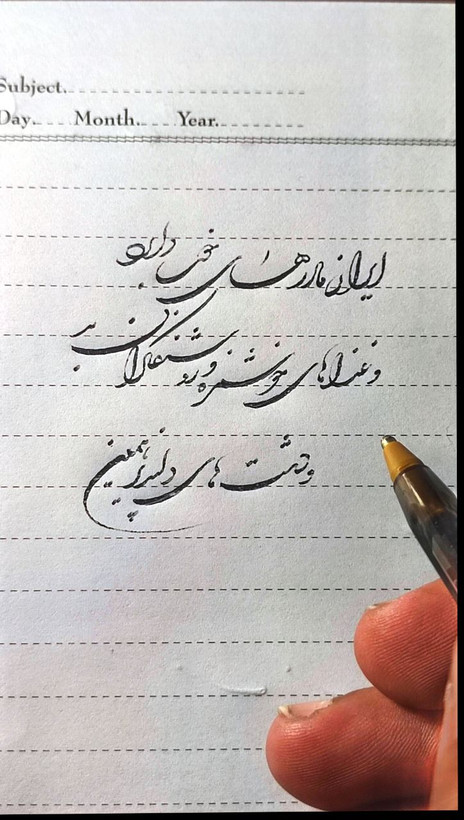 Subject.
Day. Month. Year.
ایران مادرهای خوب دارد
و غذاهای خوشمزه و روشنفکران بد
و دشت های دلپذیر همین